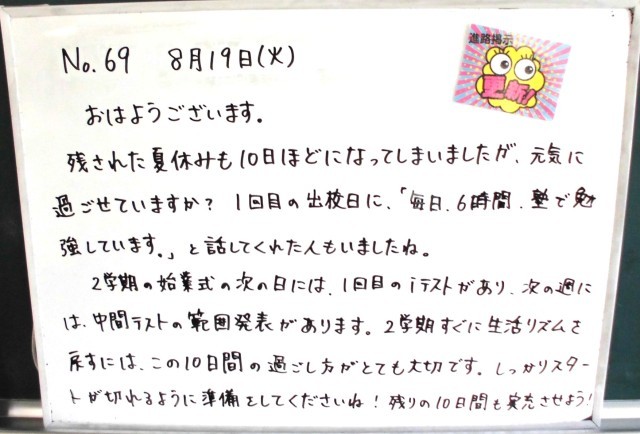 No.69 8月19日(火)
進路掲示
更新!!
おはようございます。
残された夏休みも10日ほどになってしまいましたが、元気に
過ごせていますか? 1回目の出校日に、「毎日、6時間、塾で勉
強しています。」と話してくれた人もいましたね。
2学期の始業式の次の日には、1回目のiテストがあり、次の週に
は、中間テストの範囲発表があります。2学期すぐに生活リズムを
戻すには、この10日間の過ごし方がとても大切です。しっかりスター
トが切れるように準備をしてくださいね!残りの10日間も充実させよう!